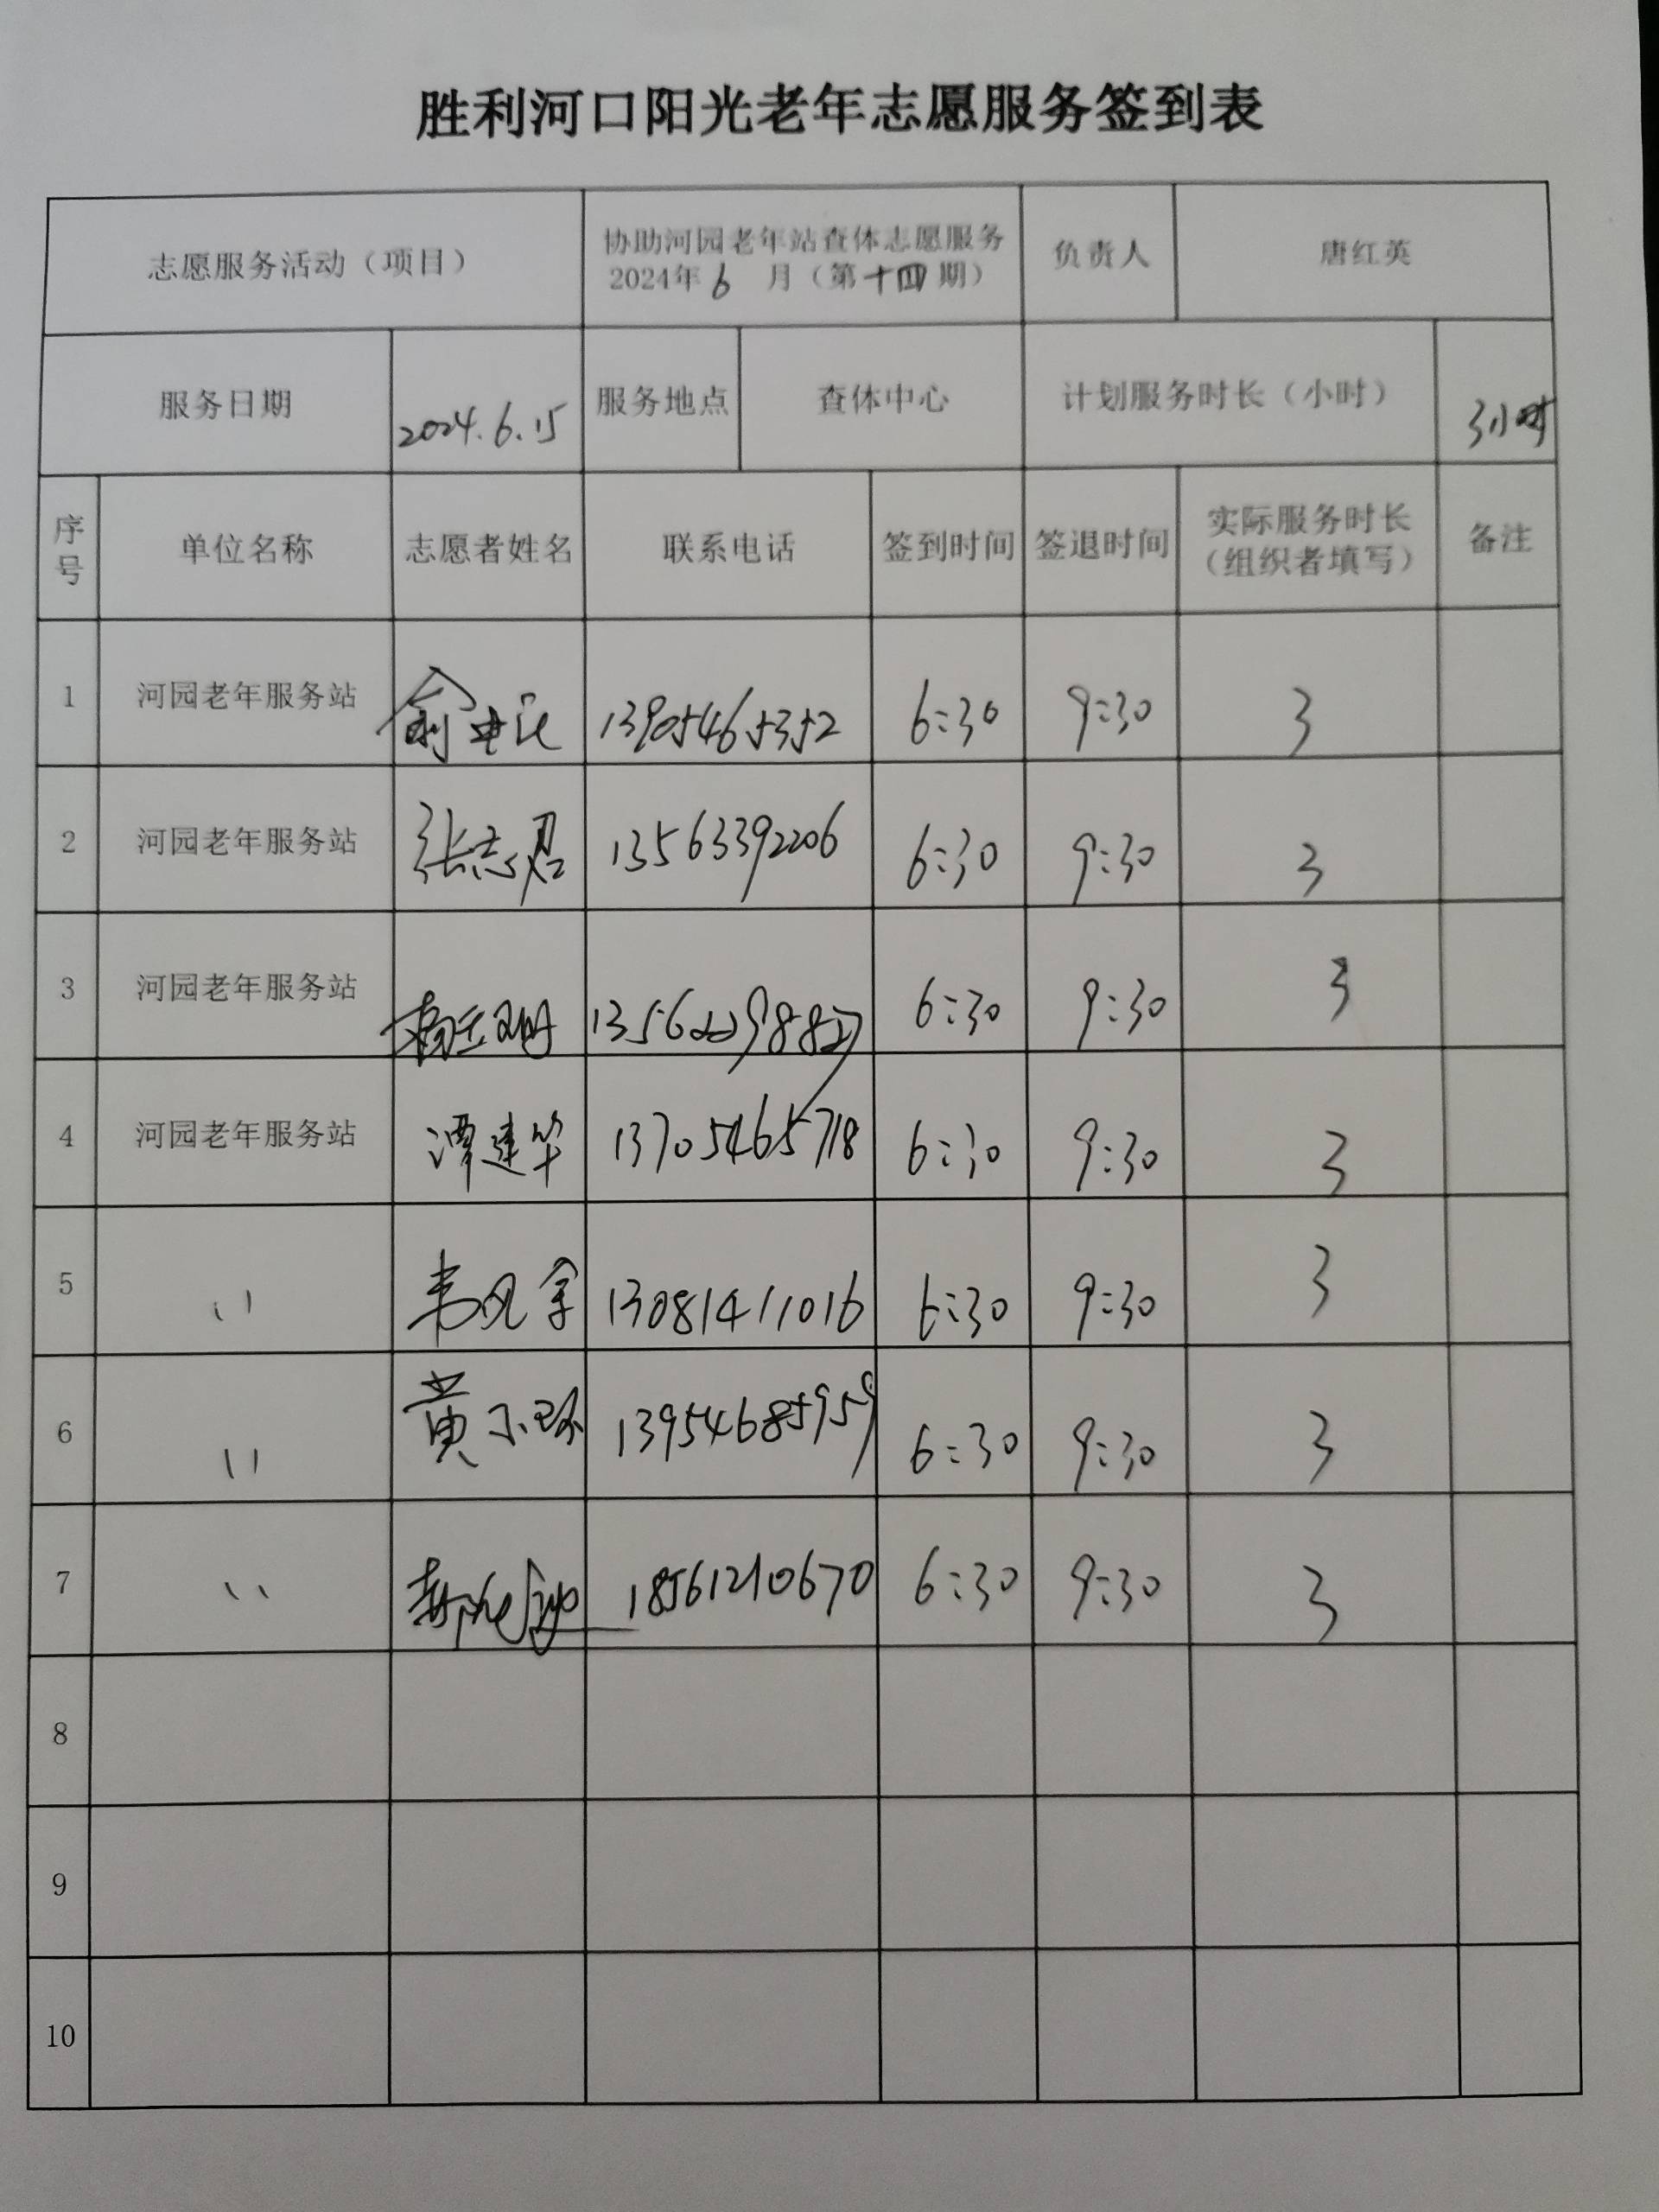 胜利河口阳光老年志愿服务签到表
志愿服务活动（项目） 协助河园老年站查体志愿服务 负责人 唐红英
2024年6 月（第十四期）
服务日期 2024.6.15 服务地点 查体中心 计划服务时长（小时） 3小时
序号 单位名称 志愿者姓名 联系电话 签到时间 签退时间 实际服务时长 备注
（组织者填写）
1 河园老年服务站 俞 13905465352 6:30 9:30 3
2 河园老年服务站 张志君 13563392206 6:30 9:30 3
3 河园老年服务站 6:30 9:30 3
4 河园老年服务站 谭建华 13705465718 6:30 9:30 3
5 〃 韦 13081411016 6:30 9:30 3
6 〃 黄 13954685959 6:30 9:30 3
7 〃 18561210670 6:30 9:30 3
8
9
10